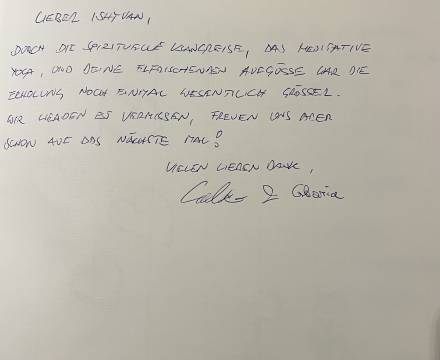 LIEBER ISHTVAN,
DURCH DIE SPIRITUELLE KLANGREISE, DAS MEDITATIVE
YOGA, UND DEINE ERFRISCHENDEN AUFGÜSSE WAR DIE
ERHOLUNG NOCH EINMAL WESENTLICH GRÖSSER.
WIR WERDEN ES VERMISSEN, FREUEN UNS ABER
SCHON AUF DAS NÄCHSTE MAL!
VIELEN LIEBEN DANK,
& Gloria